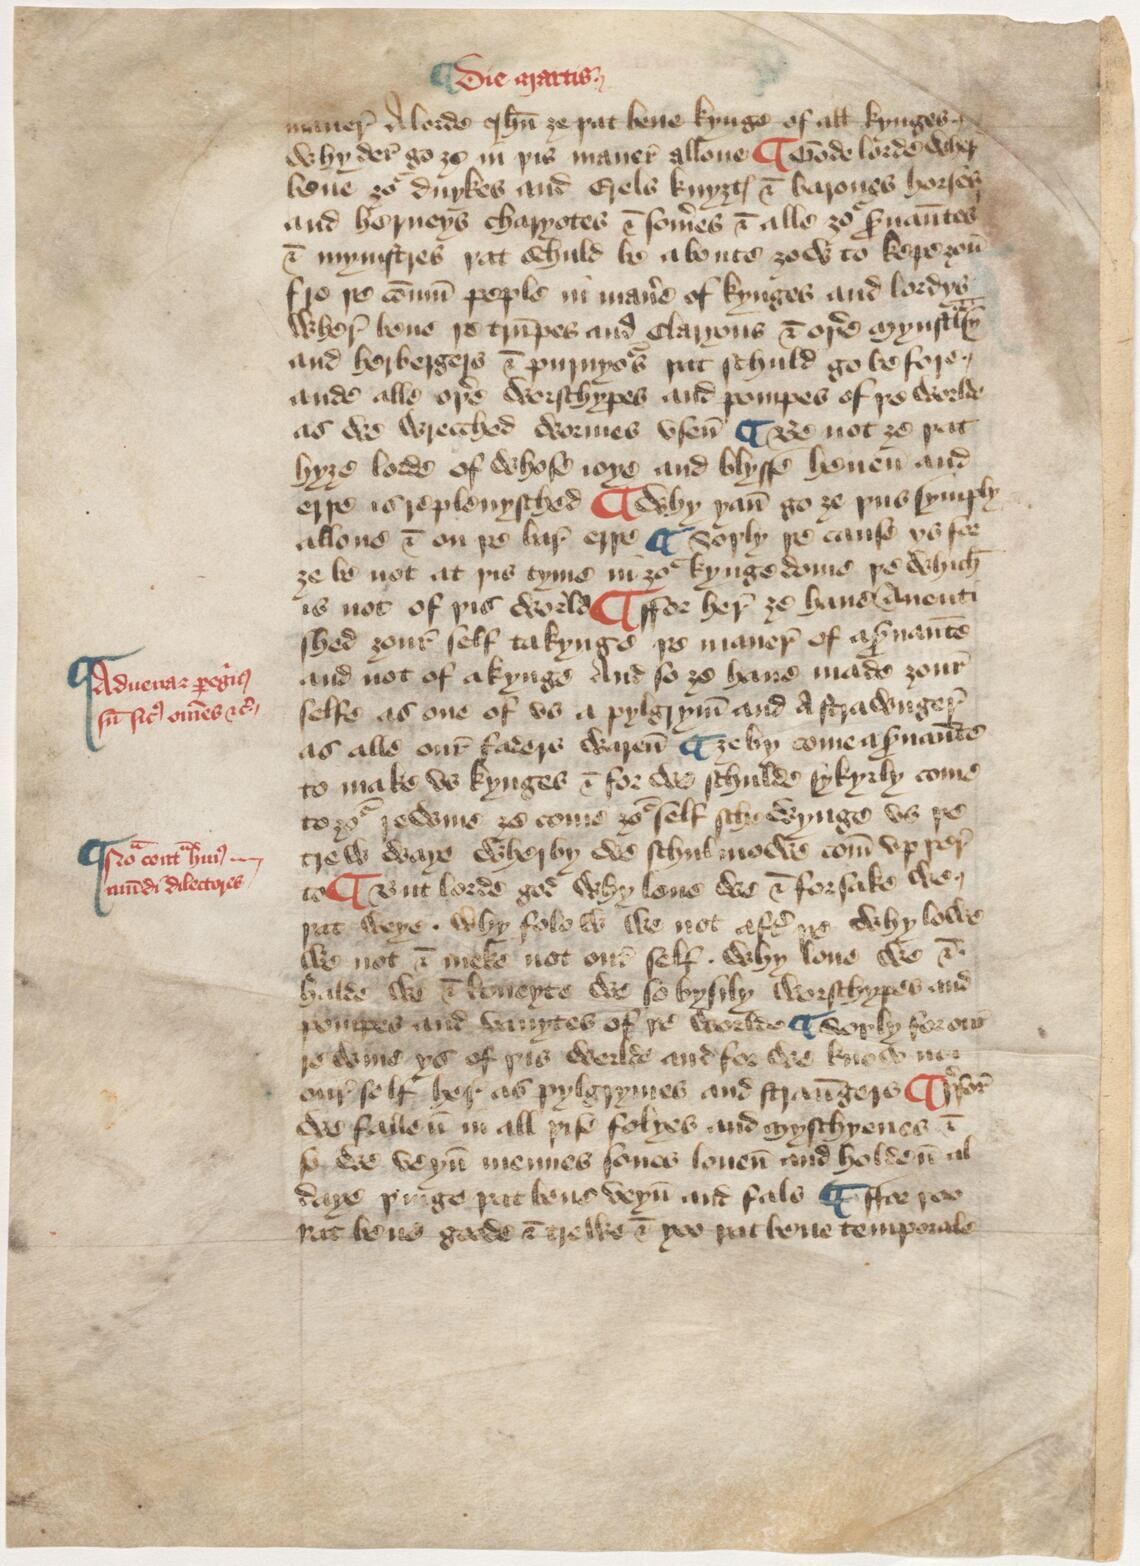 ¶ Die Martis
maner̄ A lorde Ihū ȝe þat bene kynge of all kynges
Whyder̄ go ȝe in þis maner̄ allone ¶ Gode lorde wher̄
bene ȝor duykes and Erels knyȝtꝭ & barones horses
and herneys charyotes & som̄es & alle ȝor s̄uauntes
& mynistres þat schuld be aboute ȝow to kepe ȝou
fro þe cōmū peple in man̄e of kynges and lordys
Wher̄ bene þe trūpes and Claryons & oþ̄e mynstralsy
and herbergers & puruyors þat schuld go before
ande alle oþ̄e worschypes and pompes of þe worlde
as we wrecched wormes vsen̄ ¶ Be not ȝe þat
hyȝe lorde of whose ioye and blysse heuen and
erþe is replenysched ¶ Why þan̄ go ȝe þus symply
allone & on þe bar̄ erþe ¶ Soþly þe cause ys for
ȝe be not at þis tyme in ȝor kyngedome þe which̄
is not of þis world ¶ ffor her̄ ȝe haue Anenti
shed ȝour̄ self takynge þe maner̄ of a s̄uaunte
and not of a kynge And so ȝe haue made ȝour̄
selfe as one of vs a pylgrym̄ and A strawnger̄
as alle our̄ faders waren̄ ¶ ȝe by come a s̄uaunte
to make vs kynges & for we schulde sykyrly come
to ȝor rewme ȝe come ȝor self schewynge vs þe
trew waye wherby we schul mowe com̄ vp þer̄
to ¶ But lorde god why leue we & forsake we
þat weye . Why folow we not aft̄ þe Why lowe
we not & meke not our̄ self . Why loue we &
halde we & coueyte we so bysily worschypes and
pompes and vanytes of þe worlde ¶ Soþly for our̄
rewme ys of þis worlde and for we know not
our̄ self her̄ as pylgrymes and straūgers ¶ þ̄for̄
we fallen̄ in all þise folyes and myscheues &
so we veyn̄ mennes sones louen̄ and holden̄ al
daye þinge þat bene veyn̄ and fals ¶ ffor þoo
þat bene goode & trewe & þoo þat bene temporale
¶ Aduena & peregrin9
sū sic9 om̄es &c̄
¶ Noa contra hui9
mūdi dilectores